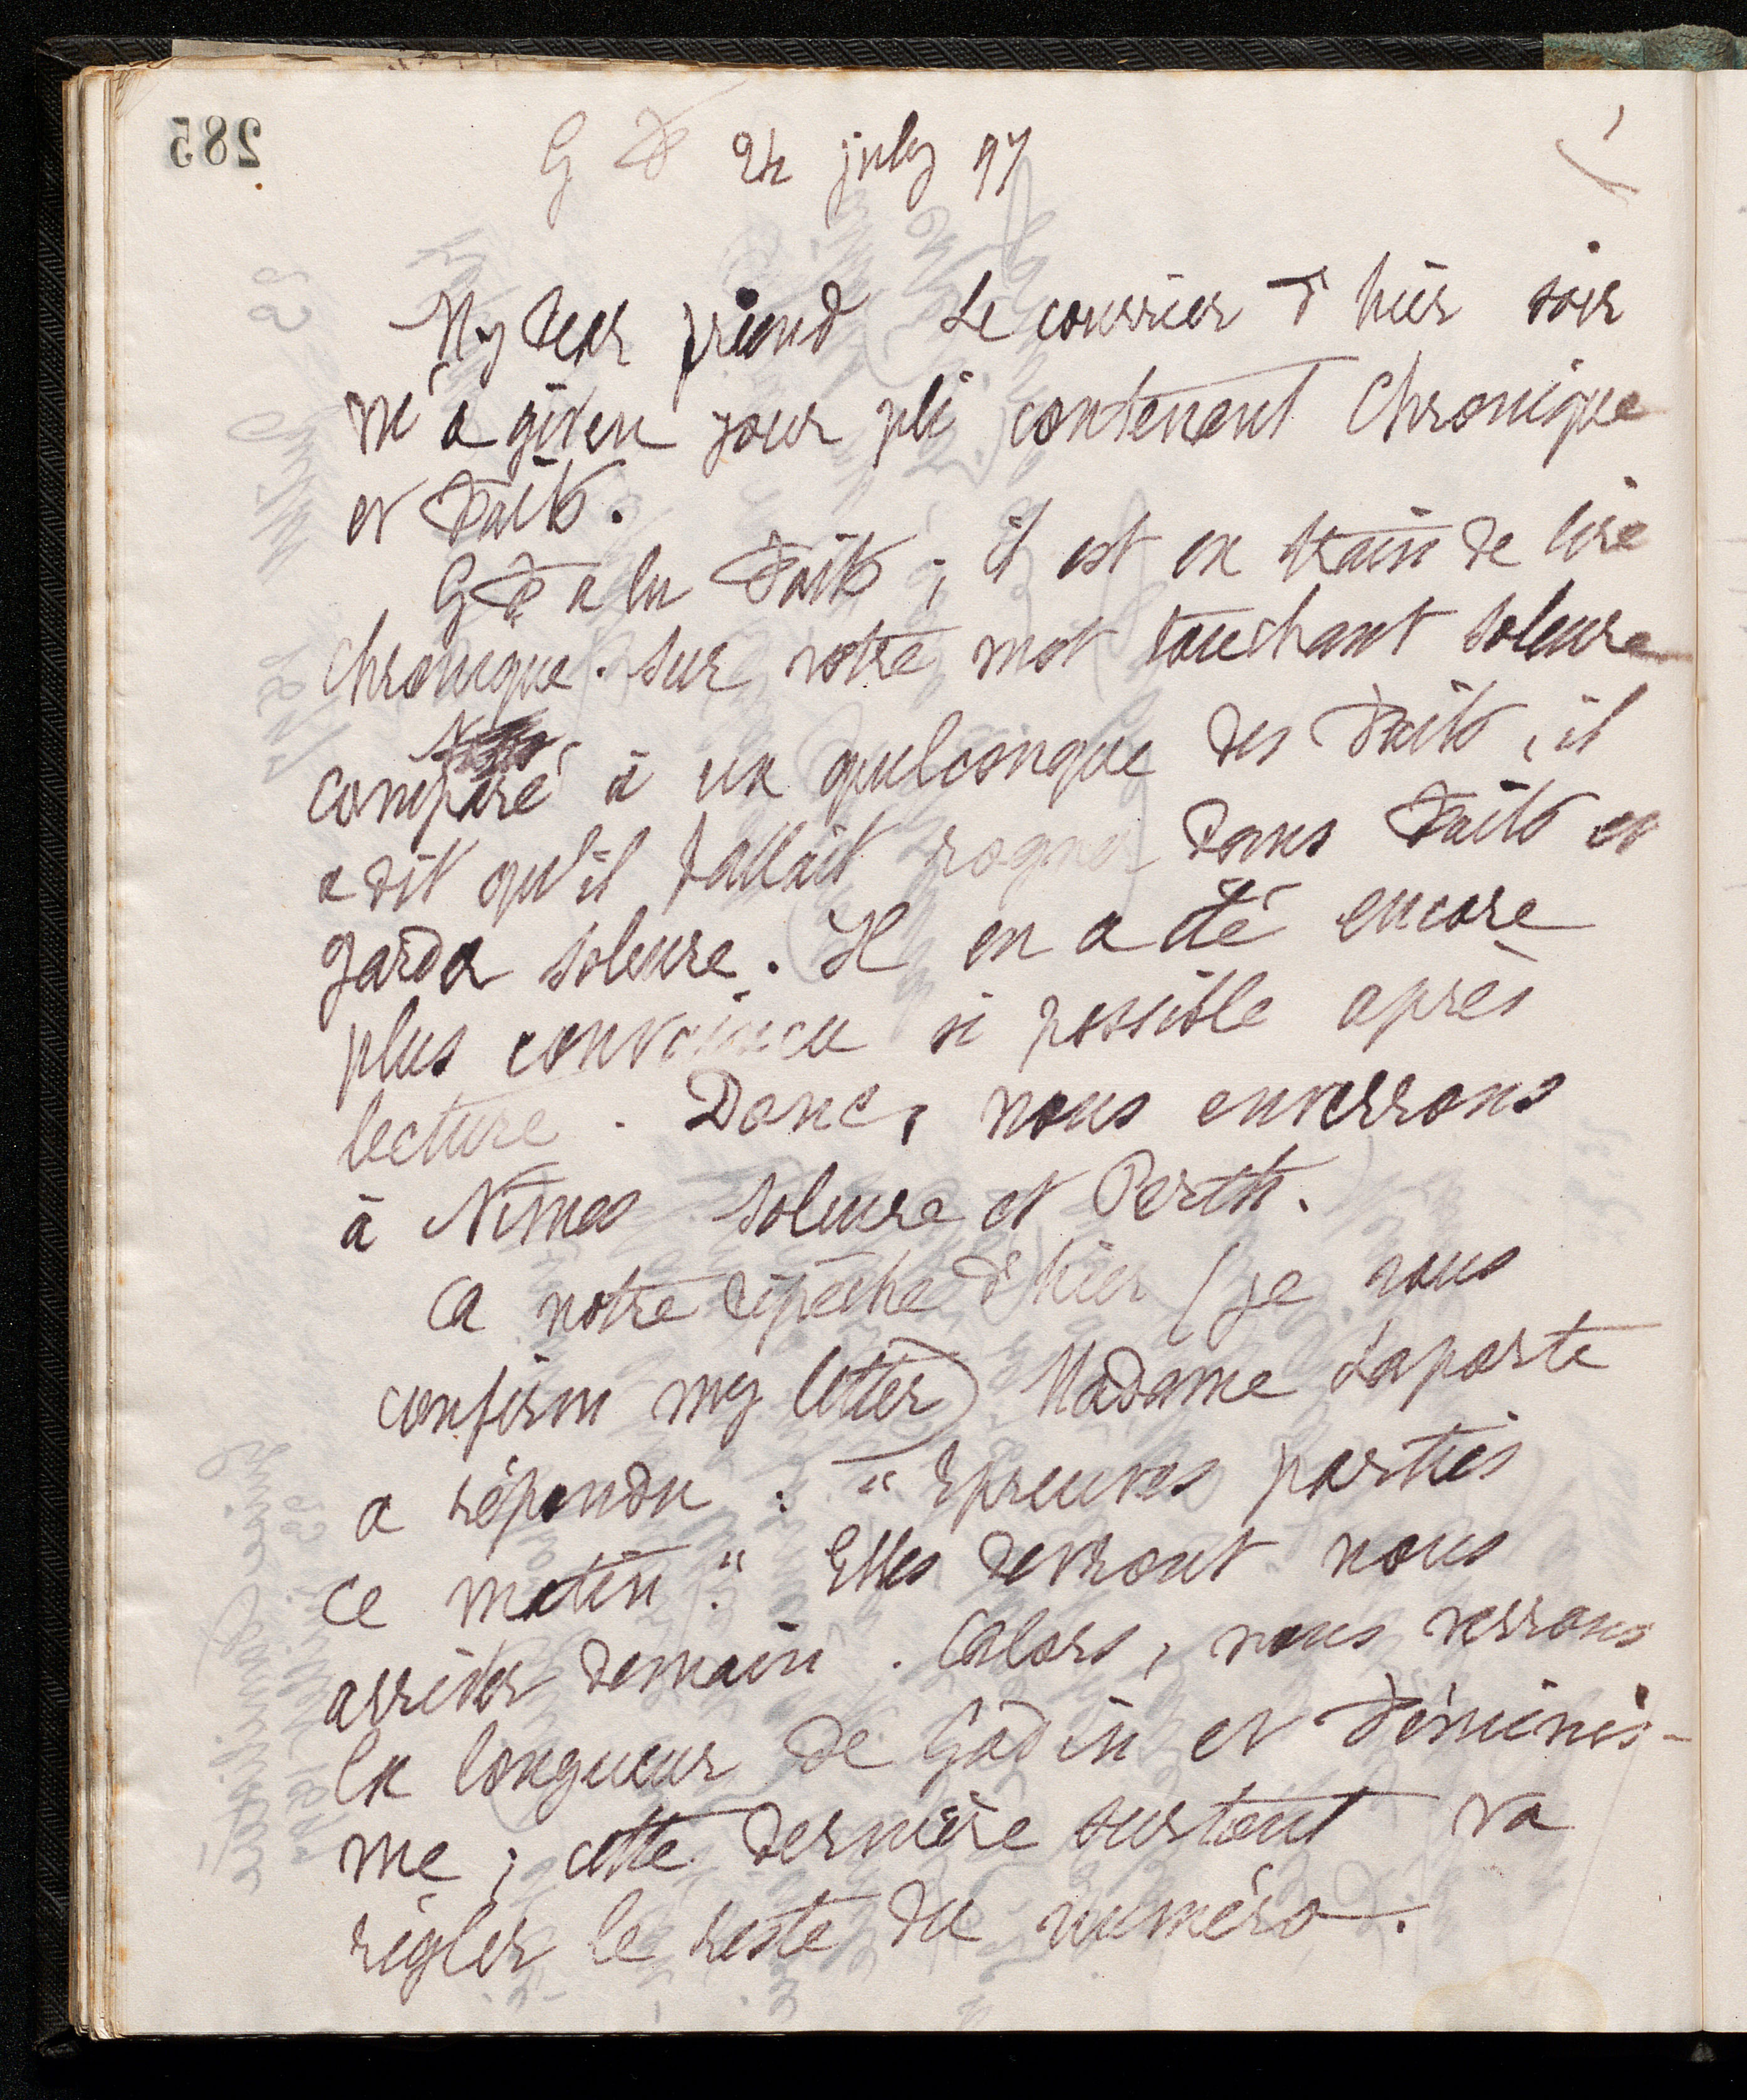 285
G D 24 july 97
My dear friend Le courrier d'hier soir
m'a given your pli contenant Chronique
et Faits.
GD a lu Faits ; il est en train de lire
chronique. Sur votre mot touchant Soleure
comparé à un quelconque des Faits, il
a dit qu'il fallait rogner dans Faits et
garder Soleure. Il en a été encore
plus convaincu si possible après
lecture. Donc, nous enverrons
à Nîmes Soleure et Perth.
A notre dépêche d'hier (je vous
confirm my letter) Madame Laporte
a répondu : "Epreuves parties
ce matin." Elles devront nous
arriver demain. Alors, nous verrons
la longueur de Godin et Féminis-
me ; cette dernière surtout va
régler le reste du numéro.